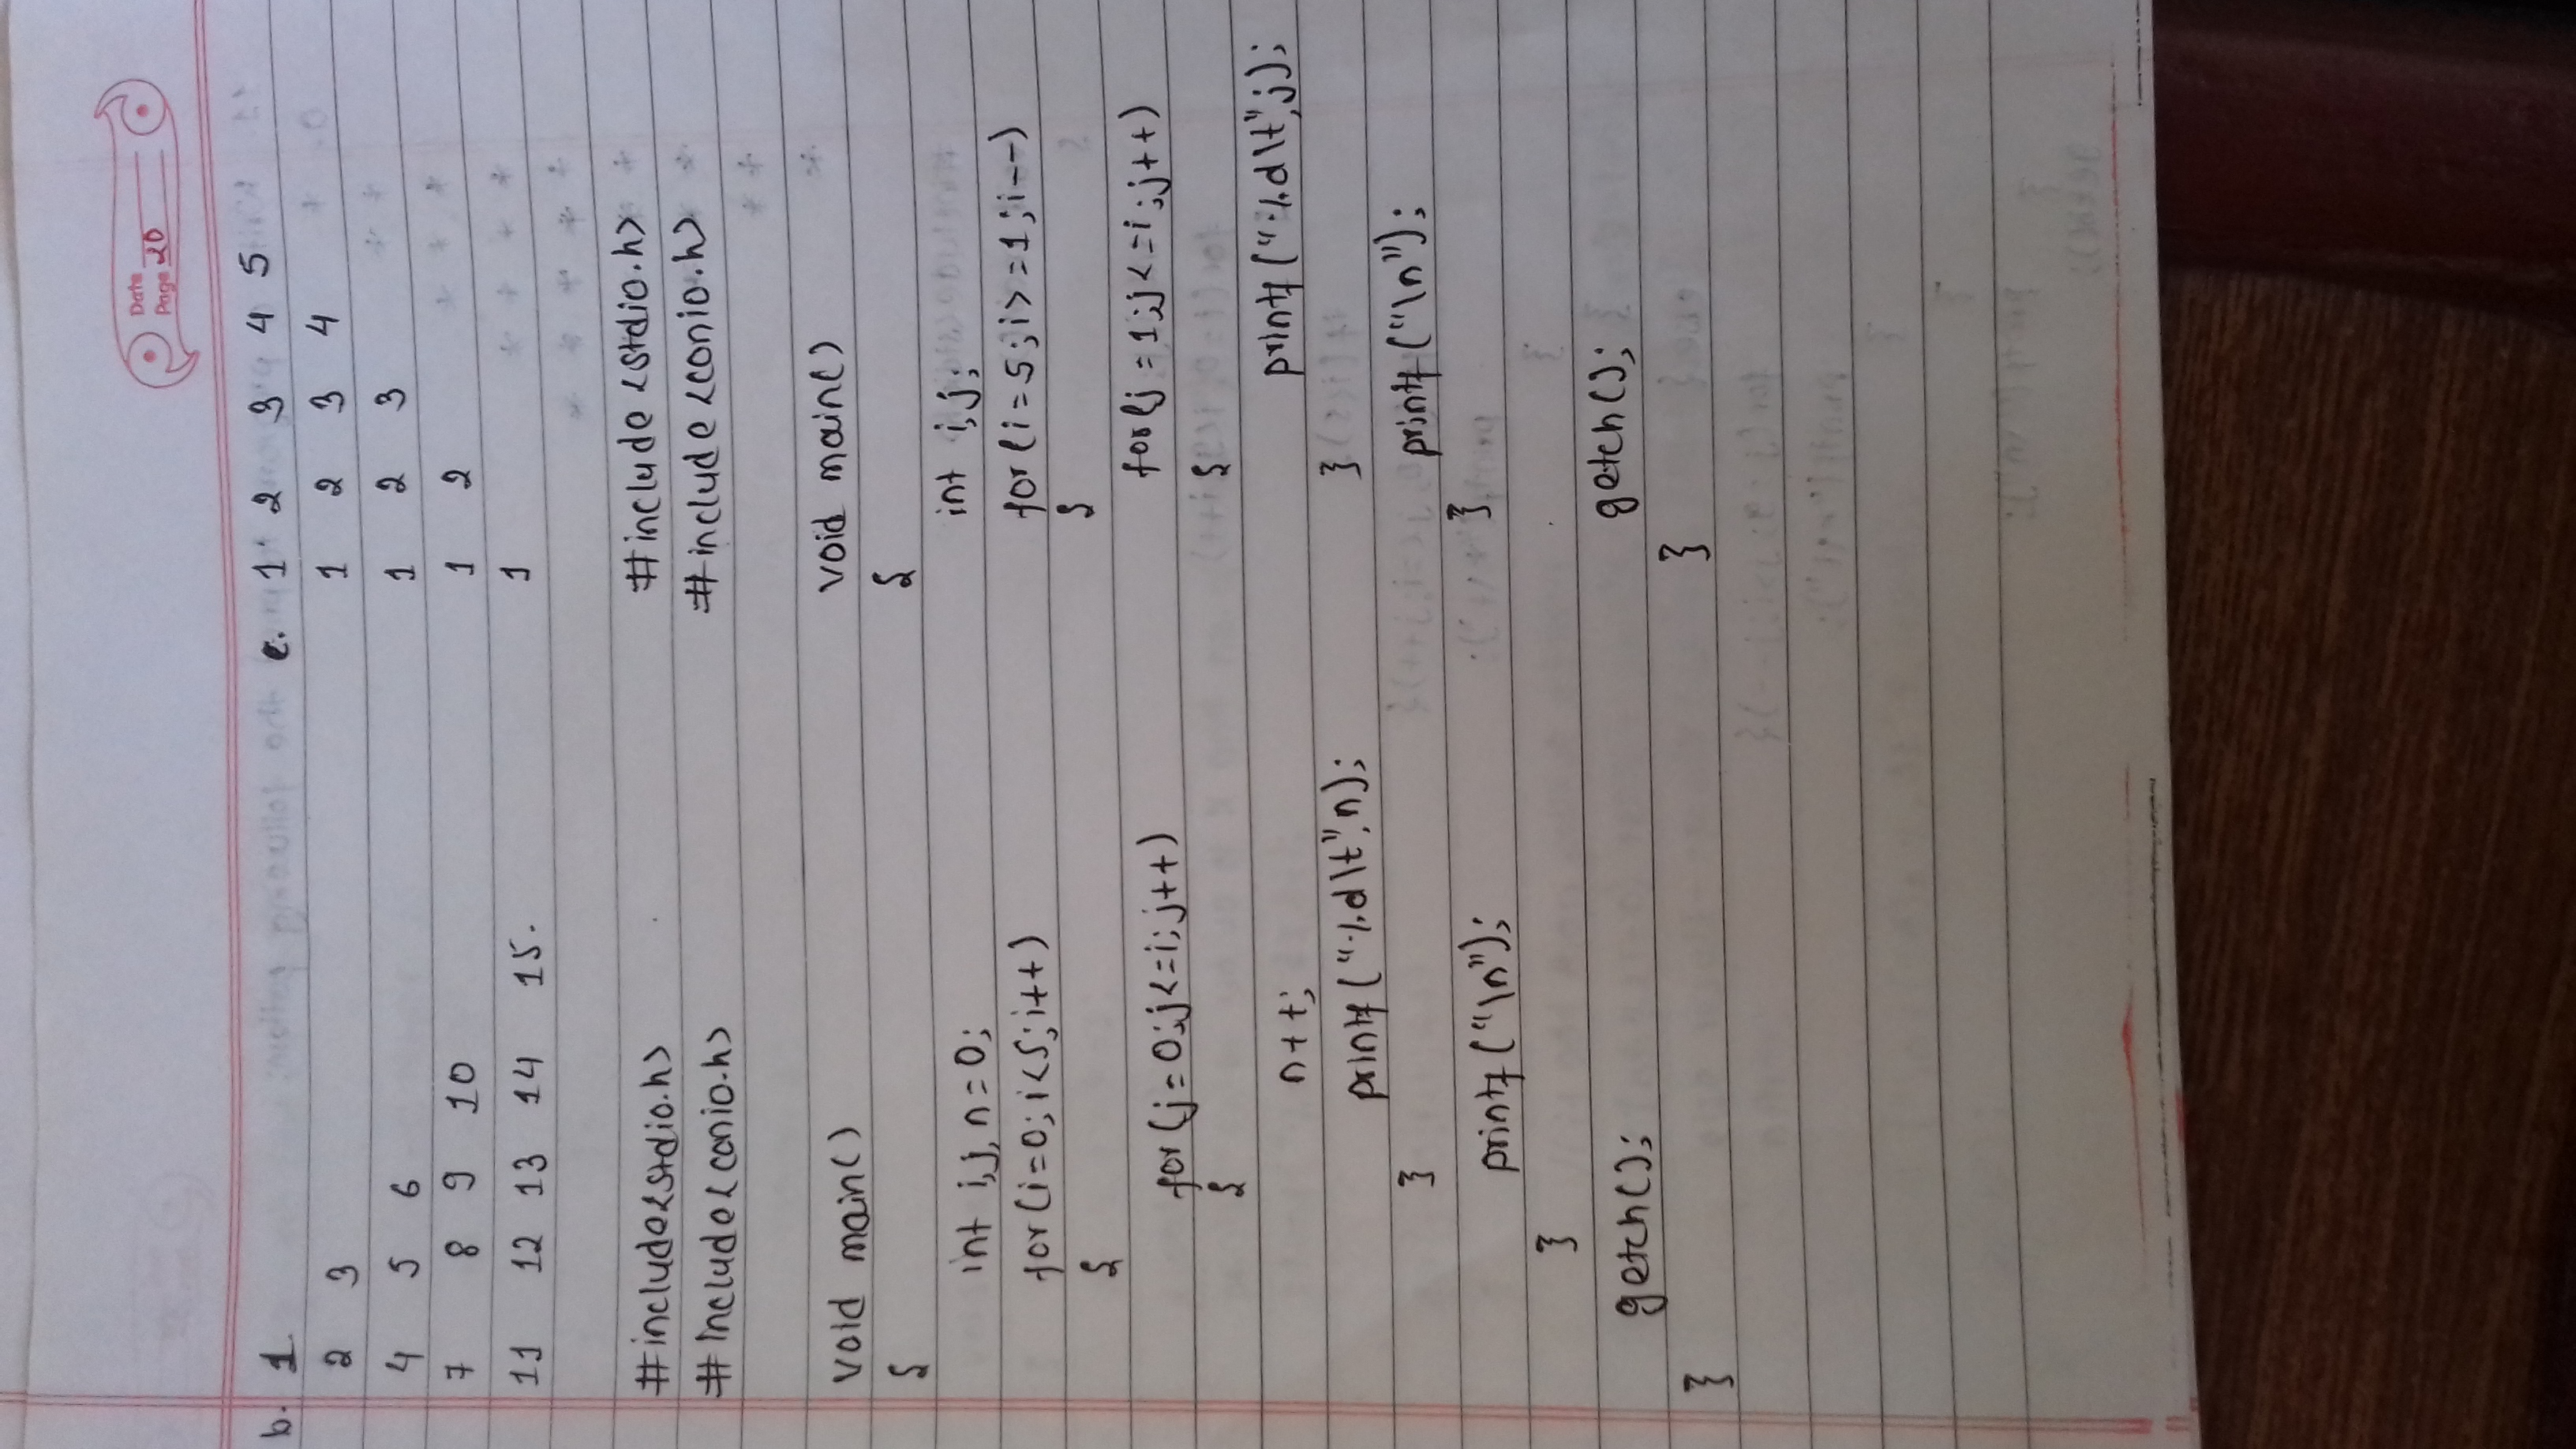 Date
Page 20
b. 1.
2 3
4 5 6
7 8 9 10
11 12 13 14 15.
#include<stdio.h>
#include<conio.h>
void main()
{
int i,j, n=0;
for(i=0; i<5; i++)
{
for(j=0;j<=i; j++)
{
n++;
printf("%d\t",n);
}
printf("\n");
}
getch();
}
c. 1 2 3 4 5
1 2 3 4
1 2 3
1 2
1
#include<stdio.h>
#include<conio.h>
void main()
{
int i,j;
for(i=5;i>=1;i--)
{
for(j=1;j<=i;j++)
{
printf("%d\t",j);
}
printf("\n");
}
getch();
}